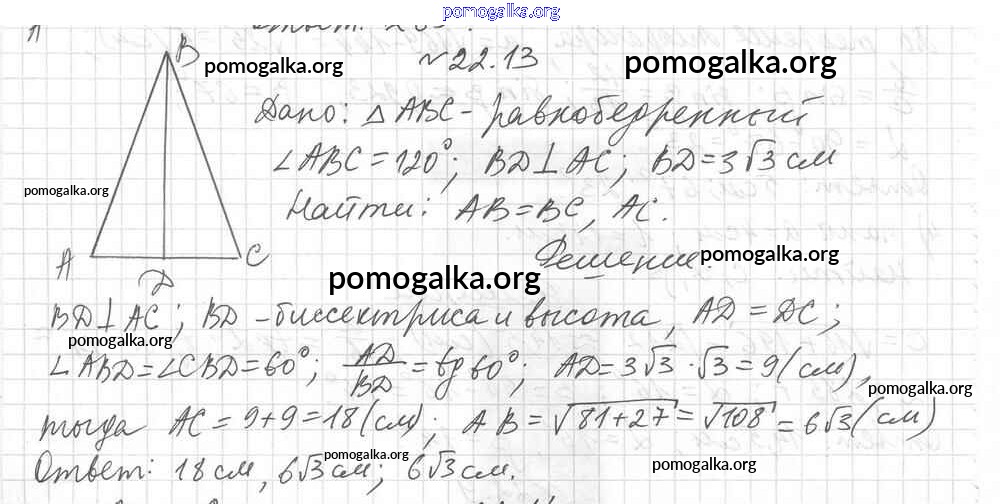 pomogalka.org
№22.13
pomogalka.org
pomogalka.org
B
Дано: △ABC - равнобедренный
∠ABC = 120°; BD⊥AC; BD = 3√3 см
pomogalka.org
Найти: AB = BC, AC.
Решение:
pomogalka.org
A
C
D
pomogalka.org
BD⊥AC; BD - биссектриса и высота, AD = DC;
pomogalka.org
∠ABD = ∠CBD = 60°; AD/BD = tg 60°; AD = 3√3 · √3 = 9 (см),
pomogalka.org
тогда AC = 9+9 = 18 (см); AB = √81+27 = √108 = 6√3 (см)
pomogalka.org
Ответ: 18 см, 6√3 см; 6√3 см.
pomogalka.org